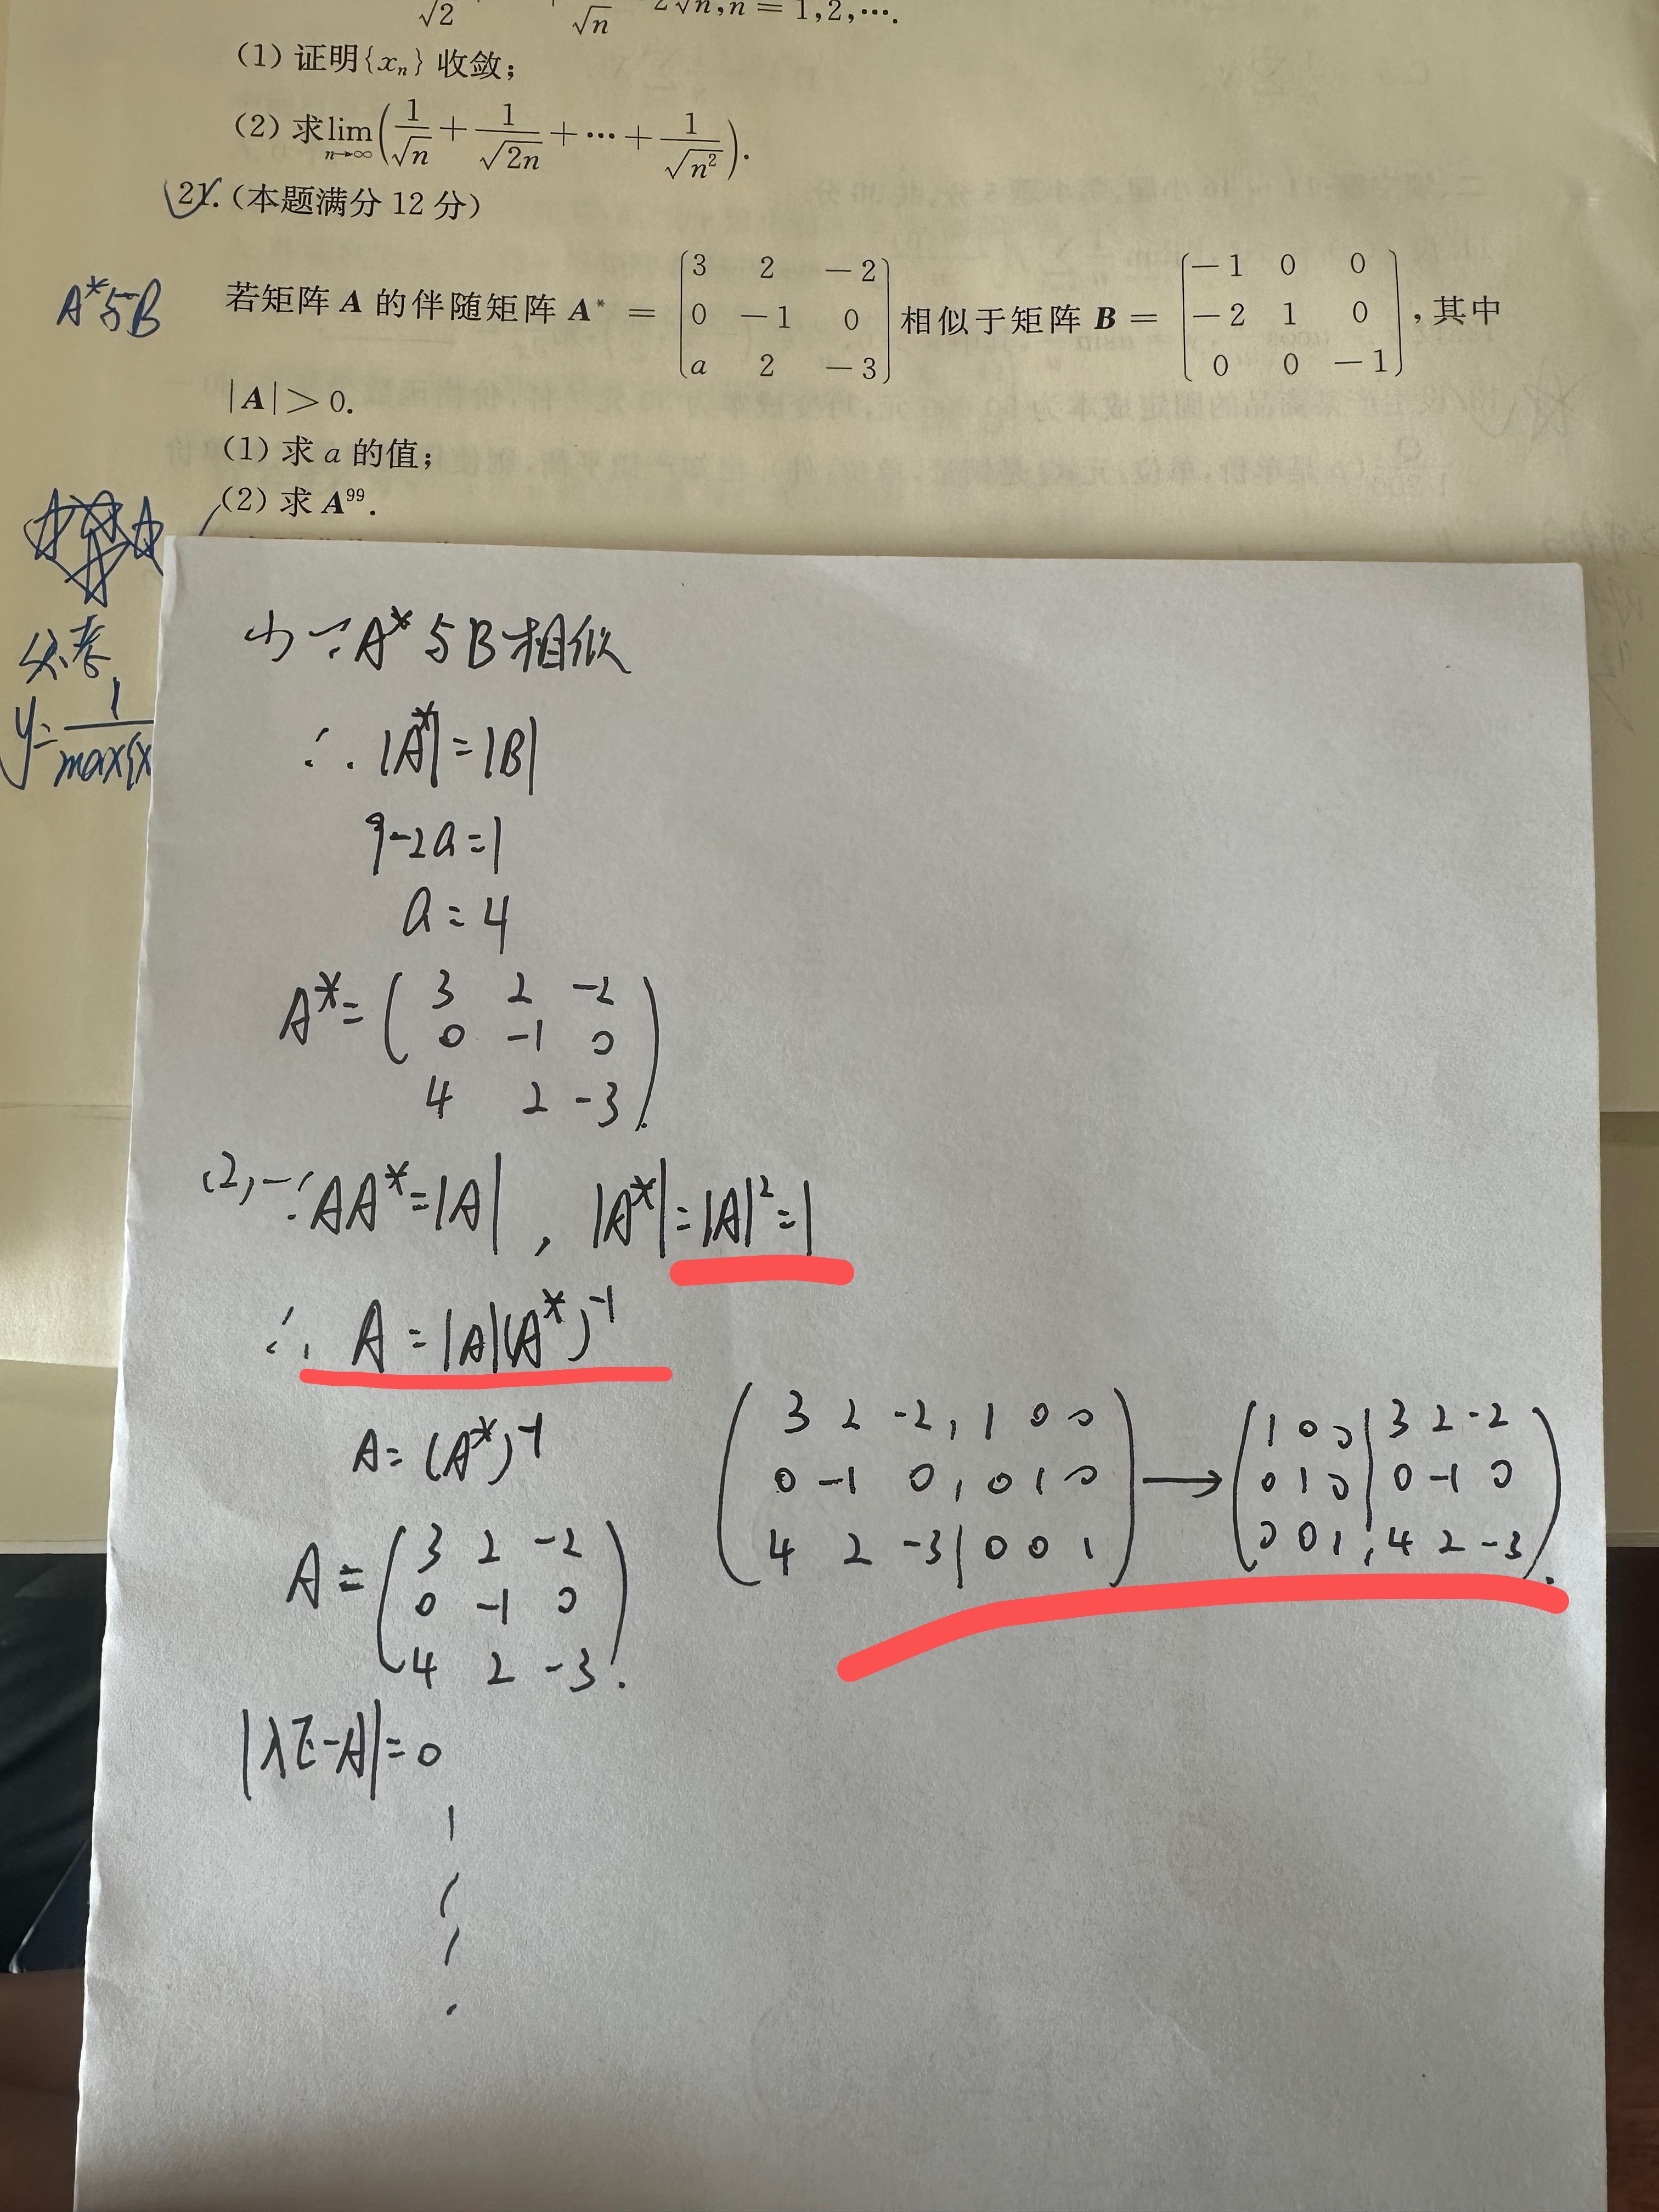 √2 √n 2√n, n = 1,2,⋯.
(1) 证明{xₙ} 收敛;
(2) 求lim(n→∞)(1/√n + 1/√2n + ⋯ + 1/√n²).
21. (本题满分 12 分)
A*与B
若矩阵 A 的伴随矩阵 A* = [3 2 −2; 0 −1 0; a 2 −3] 相似于矩阵 B = [−1 0 0; −2 1 0; 0 0 −1], 其中
|A| > 0.
(1) 求 a 的值;
(2) 求 A⁹⁹.
y=1/max{x
(1) ∵ A*与B相似
∴ |A*|=|B|
9-2a=1
a=4
A*=(3 2 -2; 0 -1 0; 4 2 -3).
(2) ∵ AA*=|A| , |A*|=|A|²=1
∴ A=|A|(A*)⁻¹
A=(A*)⁻¹
(3 2 -2 | 1 0 0; 0 -1 0 | 0 1 0; 4 2 -3 | 0 0 1) → (1 0 0 | 3 2 -2; 0 1 0 | 0 -1 0; 0 0 1 | 4 2 -3).
A=(3 2 -2; 0 -1 0; 4 2 -3).
|λE-A|=0